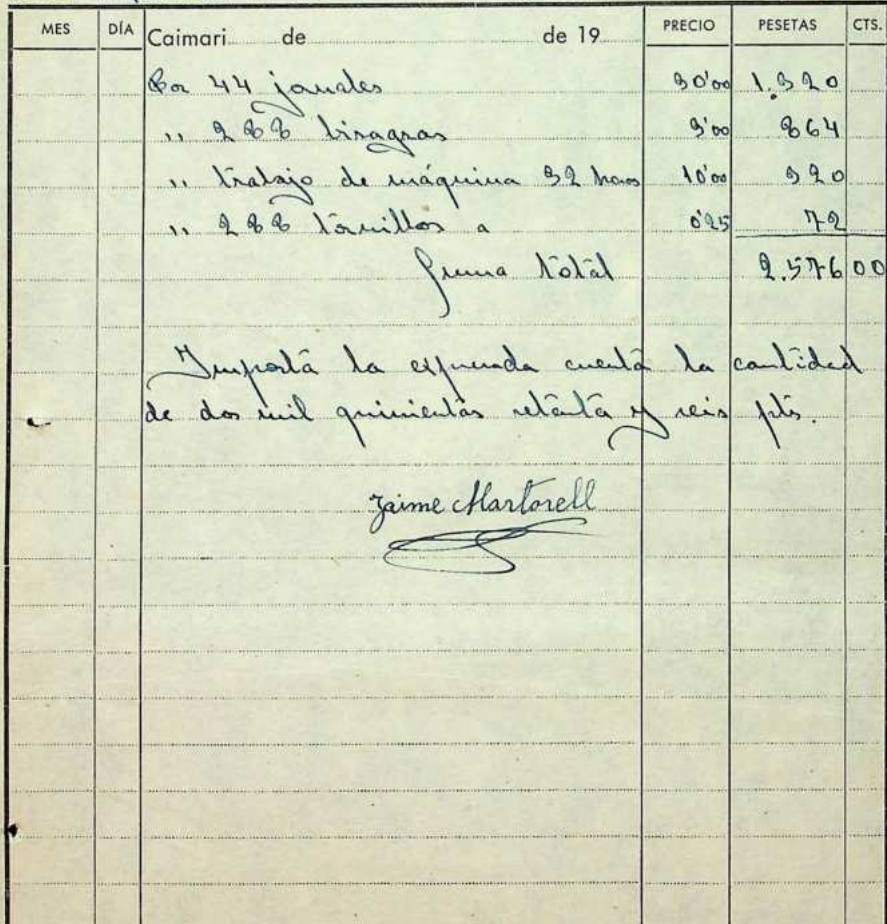 MES DÍA Caimari de de 19 PRECIO PESETAS CTS.
Por 44 jornales 30'00 1.320
,, 288 bisagras 3'00 864
,, trabajo de máquina 32 horas 10'00 320
,, 288 tornillos a 0'25 72
Suma total 2.576 00
Importa la expresada cuenta la cantidad
de dos mil quinientas setenta y seis pts.
Jaime Martorell